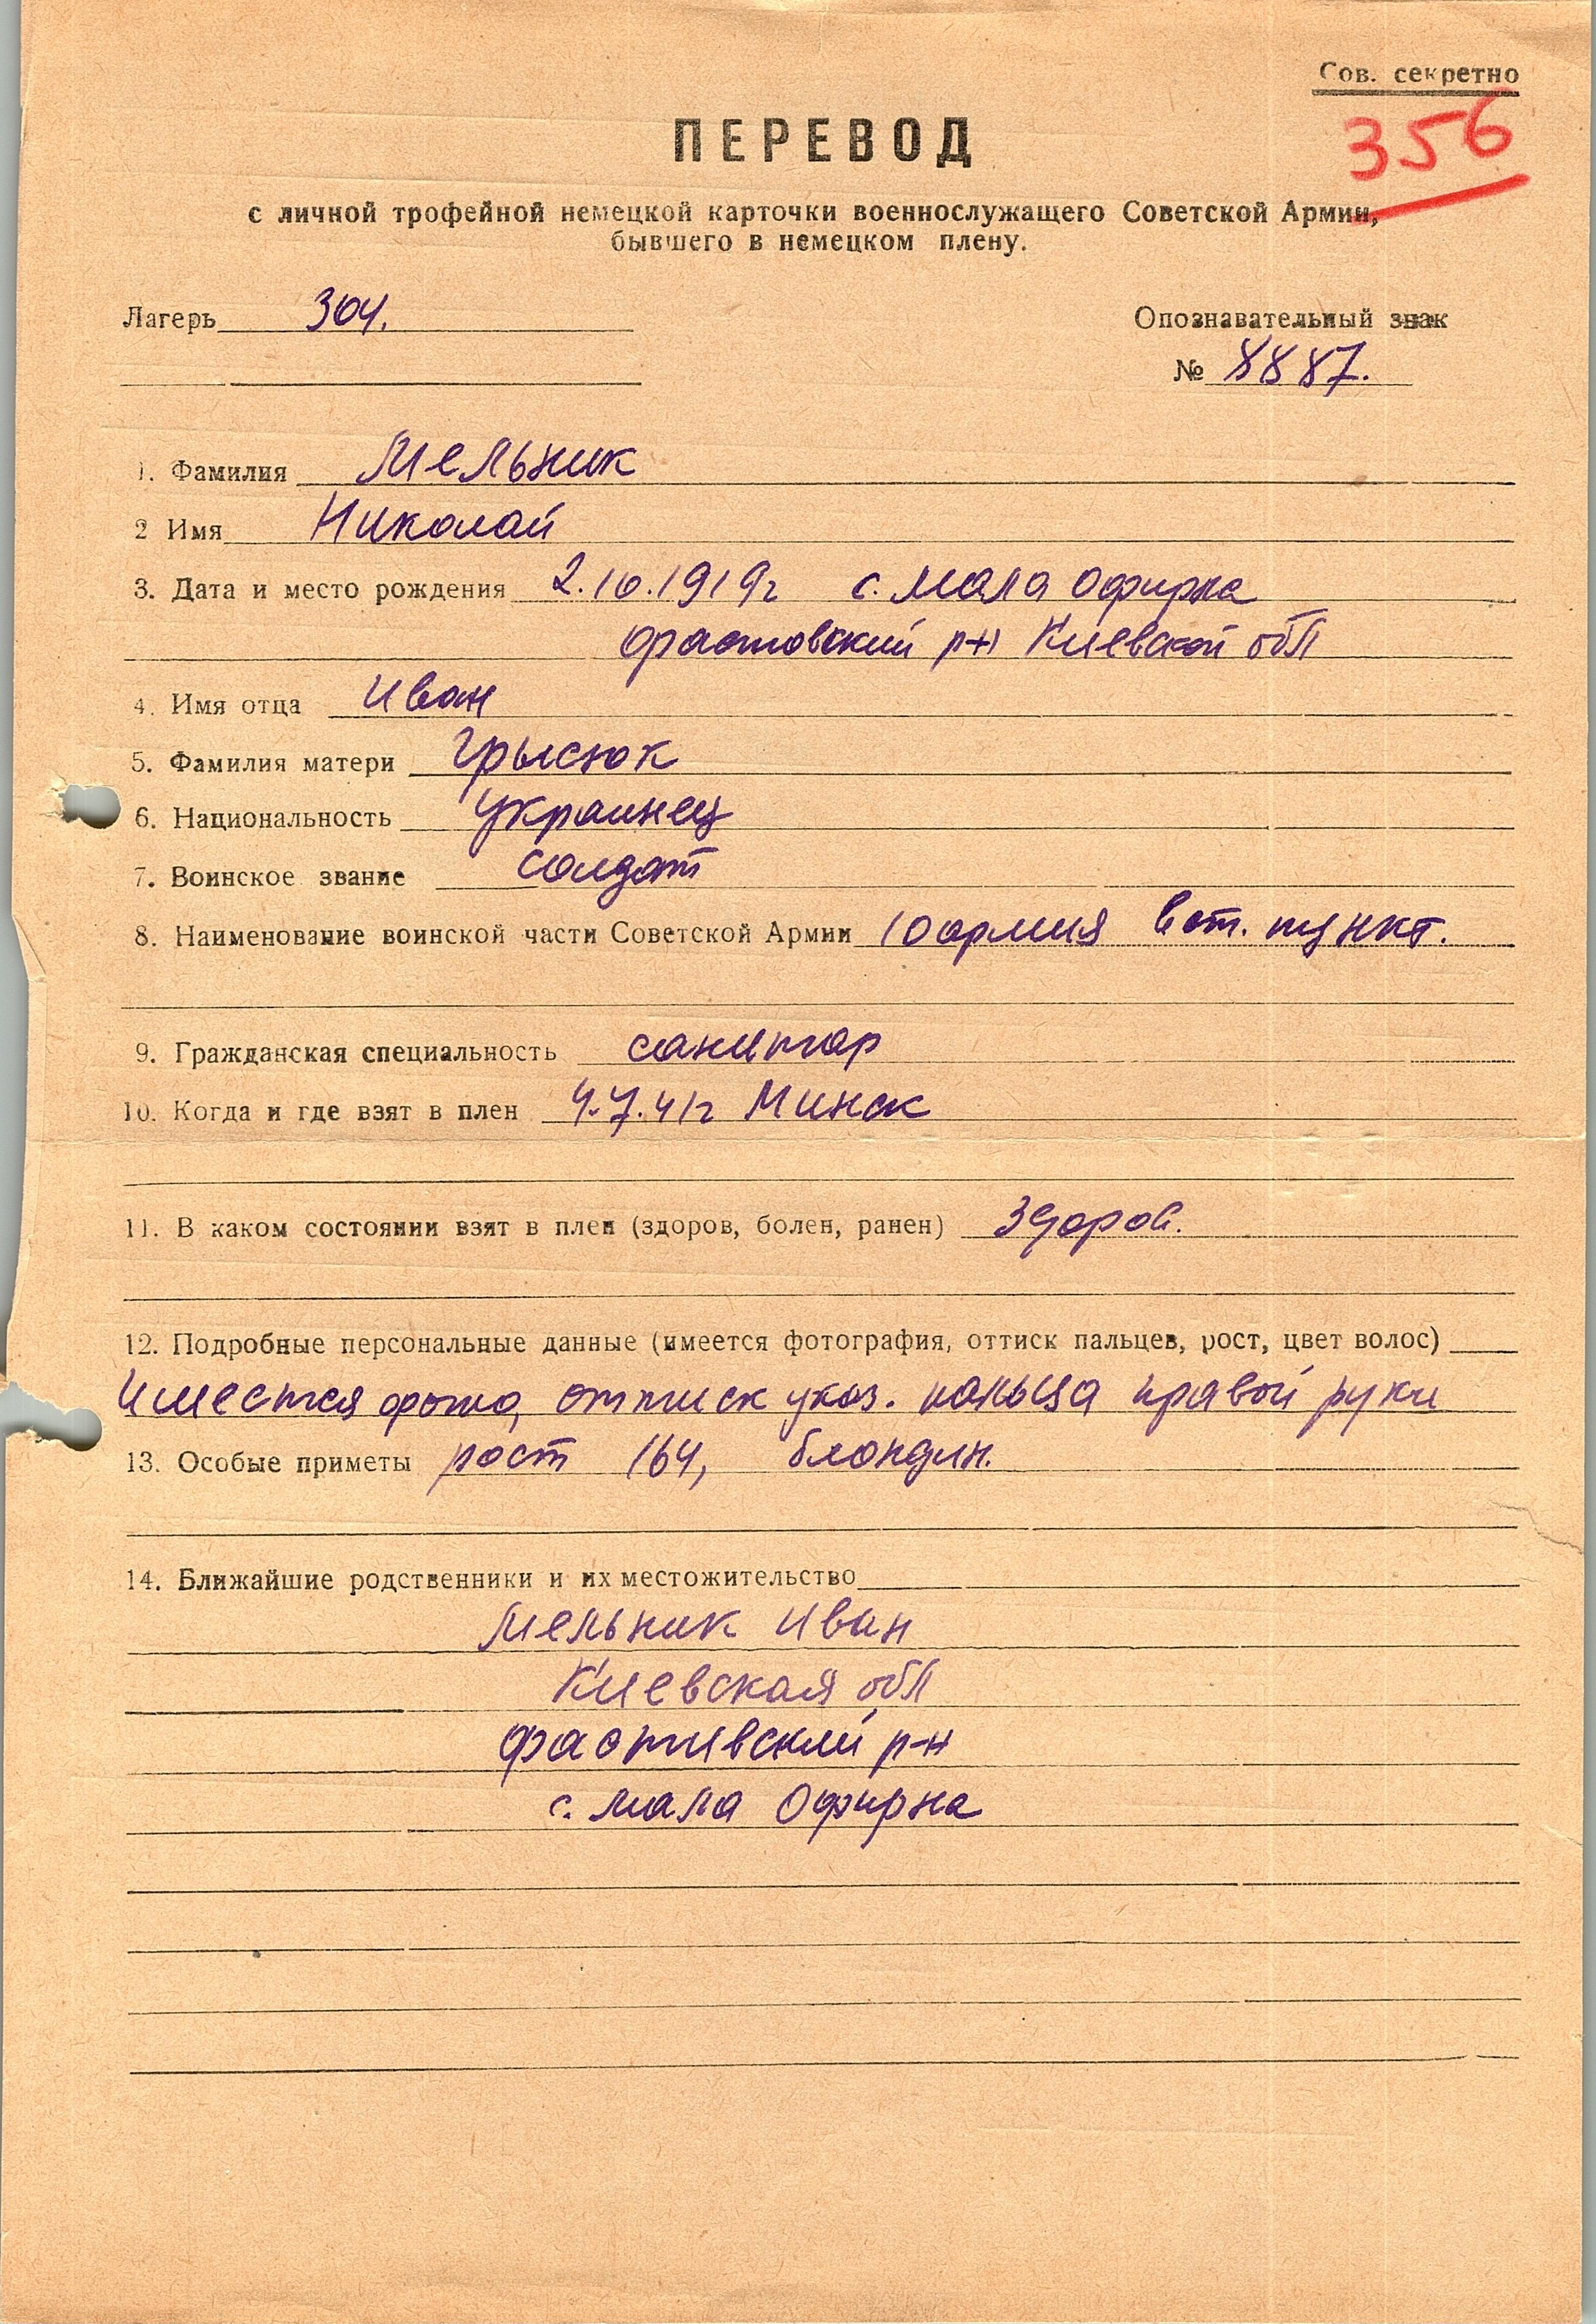 Сов. секретно
356
ПЕРЕВОД
с личной трофейной немецкой карточки военнослужащего Советской Армии,
бывшего в немецком плену.
Лагерь 304.
Опознавательный знак
№ 8887.
1. Фамилия Мельник
2 Имя Николай
3. Дата и место рождения 2.10.1919г с. Мала Офирна
Фастовский р-н Киевской обл
4. Имя отца Иван
5. Фамилия матери Грысюк
6. Национальность Украинец
7. Воинское звание солдат
8. Наименование воинской части Советской Армии 10 армия вет. пункт.
9. Гражданская специальность санитар
10. Когда и где взят в плен 4.7.41г Минск
11. В каком состоянии взят в плен (здоров, болен, ранен) Здоров.
12. Подробные персональные данные (имеется фотография, оттиск пальцев, рост, цвет волос)
Имеется фото, оттиск указ. пальца правой руки
13. Особые приметы рост 164, блондин.
14. Ближайшие родственники и их местожительство
Мельник Иван
Киевская обл
Фастивский р-н
с. Мала Офирна